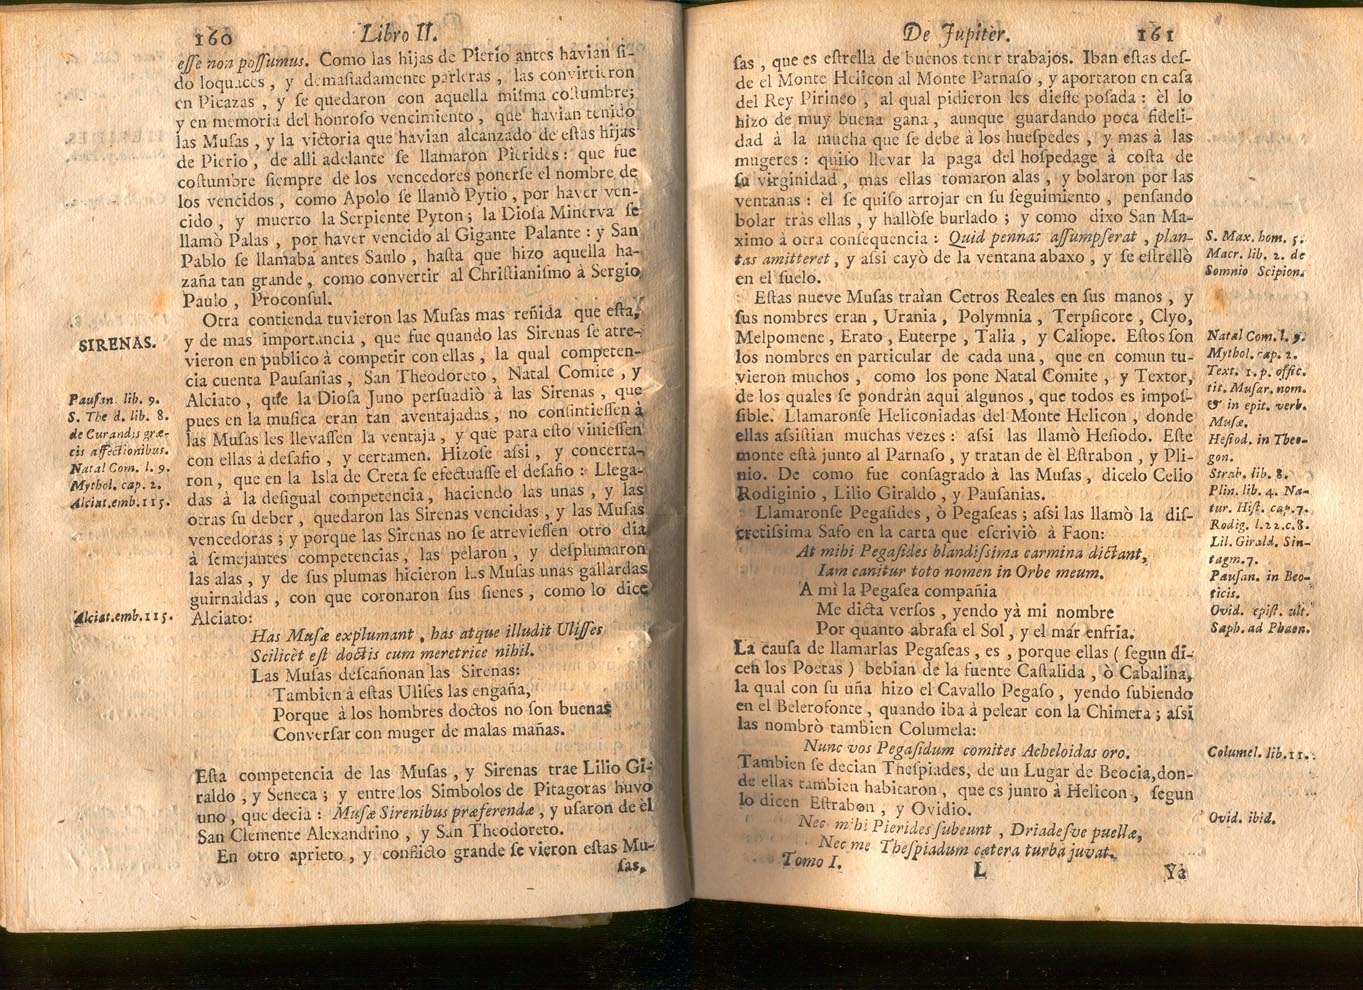 160 Libro II.
esse non possumus. Como las hijas de Pierio antes havian si-
do loquaces, y demasiadamente parleras, las convirtieron
en Picazas, y se quedaron con aquella misma costumbre;
y en memoria del honroso vencimiento, que havian tenido
las Musas, y la victoria que havian alcanzado de estas hijas
de Pierio, de alli adelante se llamaron Pierides: que fue
costumbre siempre de los vencedores ponerse el nombre de
los vencidos, como Apolo se llamò Pytio, por haver ven-
cido, y muerto la Serpiente Pyton; la Diosa Minerva se
llamò Palas, por haver vencido al Gigante Palante: y San
Pablo se llamaba antes Saulo, hasta que hizo aquella ha-
zaña tan grande, como convertir al Christianismo à Sergio
Paulo, Proconsul.
Otra contienda tuvieron las Musas mas reñida que esta,
y de mas importancia, que fue quando las Sirenas se atre-
vieron en publico à competir con ellas, la qual competen-
cia cuenta Pausanias, San Theodoreto, Natal Comite, y
Alciato, que la Diosa Juno persuadiò à las Sirenas, que
pues en la musica eran tan aventajadas, no consintiessen à
las Musas les llevassen la ventaja, y que para esto viniessen
con ellas à desafio, y certamen. Hizose assi, y concerta-
ron, que en la Isla de Creta se efectuasse el desafio: Llega-
das à la desigual competencia, haciendo las unas, y las
otras su deber, quedaron las Sirenas vencidas, y las Musas
vencedoras; y porque las Sirenas no se atreviessen otro dia
à semejantes competencias, las pelaron, y desplumaron
las alas, y de sus plumas hicieron las Musas unas gallardas
guirnaldas, con que coronaron sus sienes, como lo dice
Alciato:
Has Musæ explumant, has atque illudit Ulisses
Scilicèt est doctis cum meretrice nihil.
Las Musas descañonan las Sirenas:
Tambien à estas Ulises las engaña,
Porque à los hombres doctos no son buenas
Conversar con muger de malas mañas.
Esta competencia de las Musas, y Sirenas trae Lilio Gi-
raldo, y Seneca; y entre los Simbolos de Pitagoras huvo
uno, que decia: Musæ Sirenibus præferendæ, y usaron de èl
San Clemente Alexandrino, y San Theodoreto.
En otro aprieto, y conflicto grande se vieron estas Mu-
sas,
SIRENAS.
Pausan. lib. 9.
S. The d. lib. 8.
de Curandis græ-
cis affectionibus.
Natal Com. l. 9.
Mythol. cap. 2.
Alciat. emb. 115.
Alciat. emb. 115.
De Jupitèr. 161
sas, que es estrella de buenos tener trabajos. Iban estas des-
de el Monte Helicon al Monte Parnaso, y aportaron en casa
del Rey Pirineo, al qual pidieron les diesse posada: èl lo
hizo de muy buena gana, aunque guardando poca fideli-
dad à la mucha que se debe à los huespedes, y mas à las
mugeres: quiso llevar la paga del hospedage à costa de
su virginidad, mas ellas tomaron alas, y bolaron por las
ventanas: èl se quiso arrojar en su seguimiento, pensando
bolar tràs ellas, y hallòse burlado; y como dixo San Ma-
ximo à otra consequencia: Quid pennas assumpserat, plan-
tas amitteret, y assi cayò de la ventana abaxo, y se estrellò
en el suelo.
Estas nueve Musas traìan Cetros Reales en sus manos, y
sus nombres eran, Urania, Polymnia, Terpsicore, Clyo,
Melpomene, Erato, Euterpe, Talia, y Caliope. Estos son
los nombres en particular de cada una, que en comun tu-
vieron muchos, como los pone Natal Comite, y Textor,
de los quales se pondràn aqui algunos, que todos es impos-
sible. Llamaronse Heliconiadas del Monte Helicon, donde
ellas assistian muchas veces: assi las llamò Hesiodo. Este
monte està junto al Parnaso, y tratan de èl Estrabon, y Pli-
nio. De como fue consagrado à las Musas, dicelo Celio
Rodiginio, Lilio Giraldo, y Pausanias.
Llamaronse Pegasides, ò Pegaseas; assi las llamò la dis-
cretissima Safo en la carta que escriviò à Faon:
At mihi Pegasides blandissima carmina dictant,
Iam canitur toto nomen in Orbe meum.
A mi la Pegasea compañia
Me dicta versos, yendo yà mi nombre
Por quanto abrasa el Sol, y el mar enfria.
La causa de llamarlas Pegaseas, es, porque ellas (segun di-
cen los Poetas) bebian de la fuente Castalida, ò Cabalina,
la qual con su uña hizo el Cavallo Pegaso, yendo subiendo
en el Belerofonte, quando iba à pelear con la Chimera; assi
las nombrò tambien Columela:
Nunc vos Pegasidum comites Acheloidas oro.
Tambien se decian Thespiades, de un Lugar de Beocia, don-
de ellas tambien habitaron, que es junto à Helicon, segun
lo dicen Estrabon, y Ovidio.
Nec mihi Pierides subeunt, Driadesve puellæ,
Nec me Thespiadum cætera turba juvat.
Tomo I. L Ya
S. Max. hom. 5.
Macr. lib. 2. de
Somnio Scipion.
Natal Com. l. 9.
Mythol. cap. 2.
Text. 1. p. offic.
tit. Musar. nom.
& in epit. verb.
Musæ.
Hesiod. in Theo-
gon.
Strab. lib. 8.
Plin. lib. 4. Na-
tur. Hist. cap. 7.
Rodig. l. 22. c. 8.
Lil. Girald. Sin-
tagm. 7.
Pausan. in Beo-
ticis.
Ovid. epist. ult.
Saph. ad Phaon.
Columel. lib. 11.
Ovid. ibid.